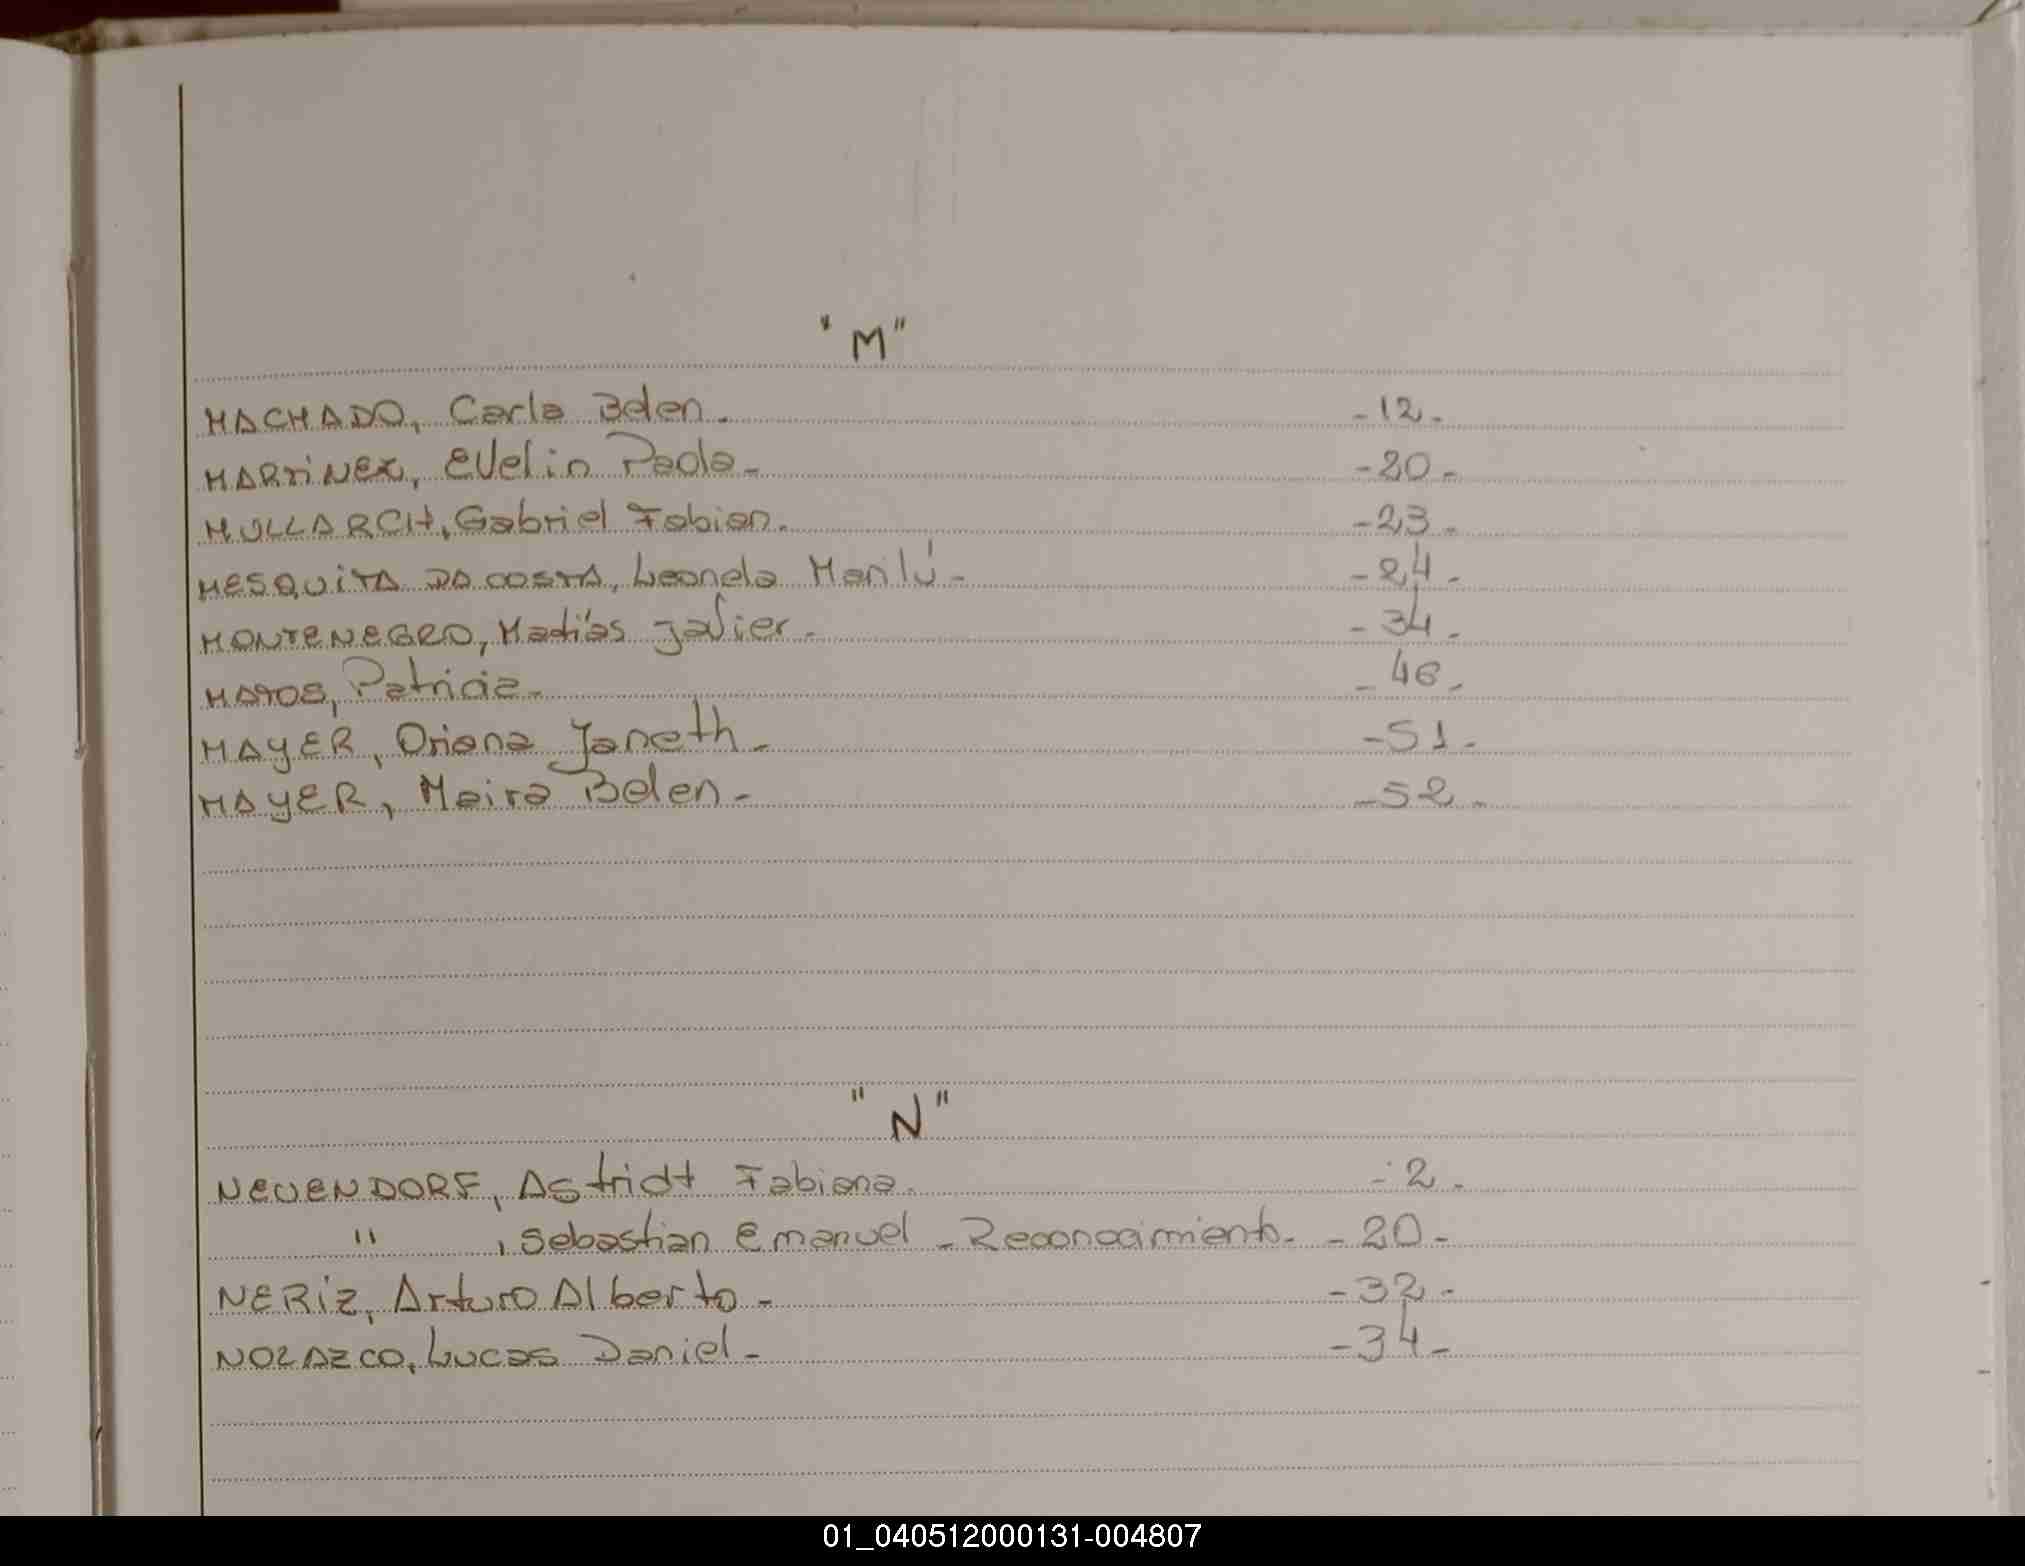 "M"
MACHADO, Carla Belen. -12-
MARTINEZ, Evelin Paola- -20-
MULLARCH, Gabriel Fabian. -23-
MESQUITA DA COSTA, Leonela Marilú- -24-
MONTENEGRO, Matías Javier- -34-
MATOS, Patricia- -46-
MAYER, Oriana Janeth- -51-
MAYER, Maira Belen- -52-
"N"
NEUENDORF, Astridt Fabiana. -2-
" , Sebastian Emanuel -Reconocimiento- -20-
NERIZ, Arturo Alberto- -32-
NOLAZCO, Lucas Daniel- -34-
01_040512000131-004807